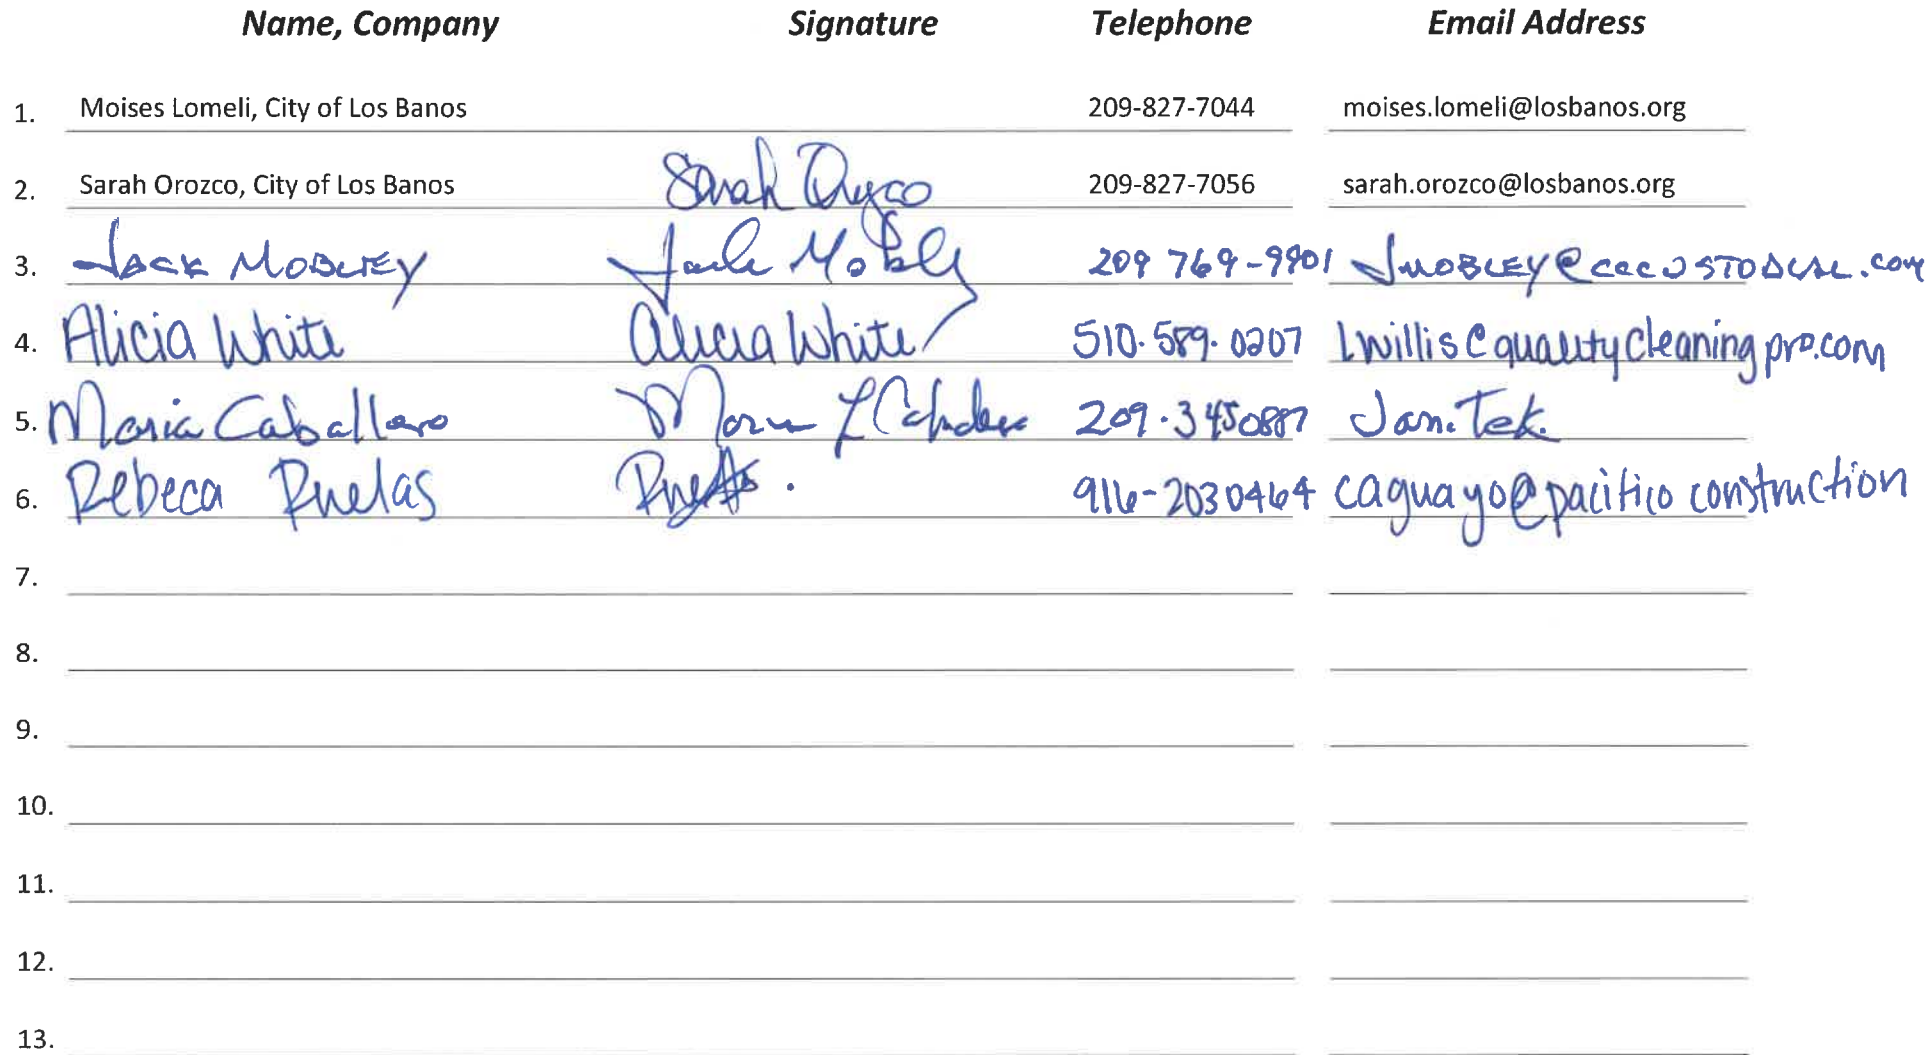 Name, Company Signature Telephone Email Address
1. Moises Lomeli, City of Los Banos 209-827-7044 moises.lomeli@losbanos.org
2. Sarah Orozco, City of Los Banos Sarah Orozco 209-827-7056 sarah.orozco@losbanos.org
3. Jack Mobley Jack Mobley 209 769-9901
4. Alicia White Alicia White 510.589.0207 lwillis@qualitycleaningpro.com
5. Maria Caballero Maria L 209.3450887 Jani.Tek.
6. Rebeca Ruelas 916-2030464 caguayo@pacifico construction
7.
8.
9.
10.
11.
12.
13.